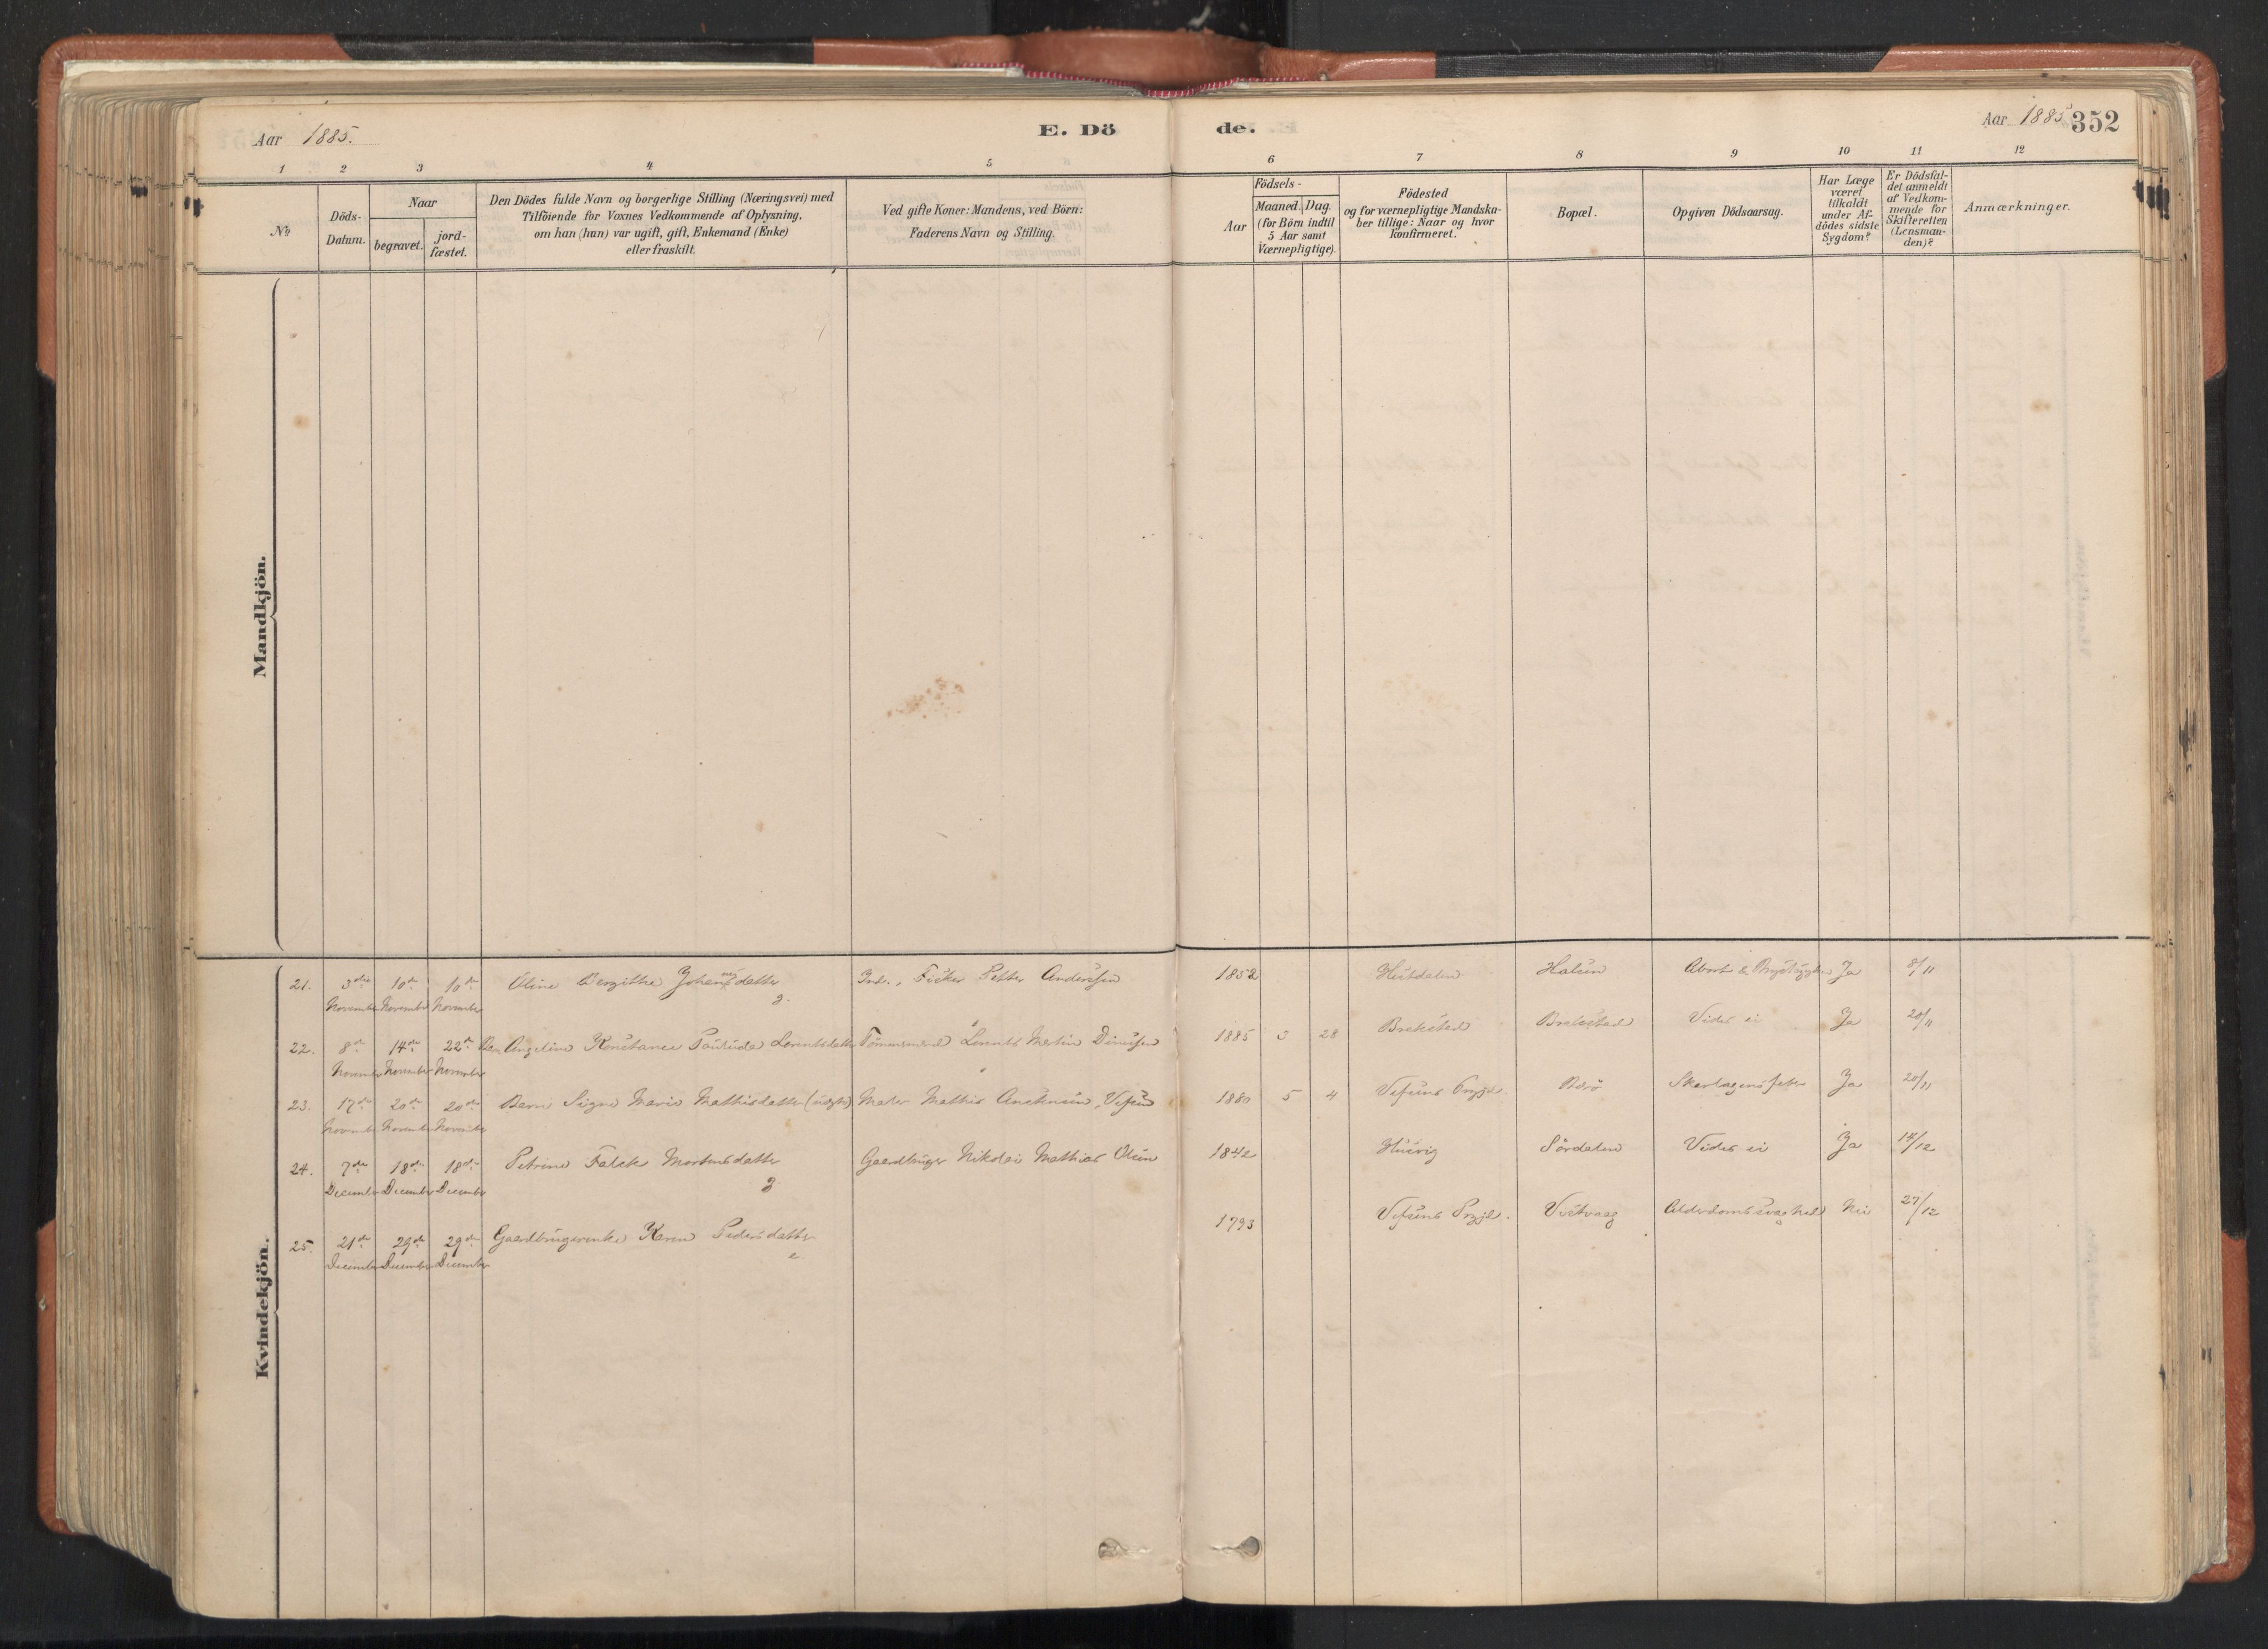 Aar 1885. E. Dö
1 2 3 4 5
No
Döds-
Datum.
Naar
begravet.
jord-
fæstet.
Den Dödes fulde Navn og borgerlige Stilling (Næringsvei) med
Tilföiende for Voxnes Vedkommende af Oplysning,
om han (hun) var ugift, gift, Enkemand (Enke)
eller fraskilt.
Ved gifte Koner: Mandens, ved Börn:
Faderens Navn og Stilling.
Mandkjön.
Kvindekjön.
21. 3die 10de 10de Oline Bergithe Johannesdatter Inds., Fisker Petter Anderssen
November November November g.
22. 8de 14de 22de Barn Angeline Konstance Lorentsdatter Tömmermand Lorents Martin
November November November
23. 17de 20de 20de Barn Signe Marie Mathisdatter (uægte) Maler Mathis Vefsen
November November November
24. 7de 18de 18de Petrine Falck Mortensdatter Gaardbruger Nikolai Mathias Olsen
December December December g
25. 21de 29de 29de Gaardbrugerenke Karen Pedersdatter
December December December e.
de. Aar 1885 352
6 7 8 9 10 11 12
Aar
Födsels-
Maaned. Dag.
(for Börn indtil
5 Aar samt
Værnepligtige).
Födested
og for værnepligtige Mandska-
ber tillige: Naar og hvor
konfirmeret.
Bopæl.
Opgiven Dödsaarsag.
Har Læge
været
tilkaldt
under Af-
dödes sidste
Sygdom?
Er Dödsfal-
det anmeldt
af Vedkom-
mende for
Skifteretten
(Lensman-
den)?
Anmærkninger.
1852 Husdalen Halsen Abort & Ja 8/11
1885 3 28 Brekstad Brekstad Vides ei Ja 20/11
1880 5 4 Vefsens Prgjld. Skarlagensfeber Ja 20/11
1842 Husvig Sördalen Vides ei Ja 14/12
1793 Vefsens Prgjld. Vistvaag Alderdomssvaghed Nei 27/12